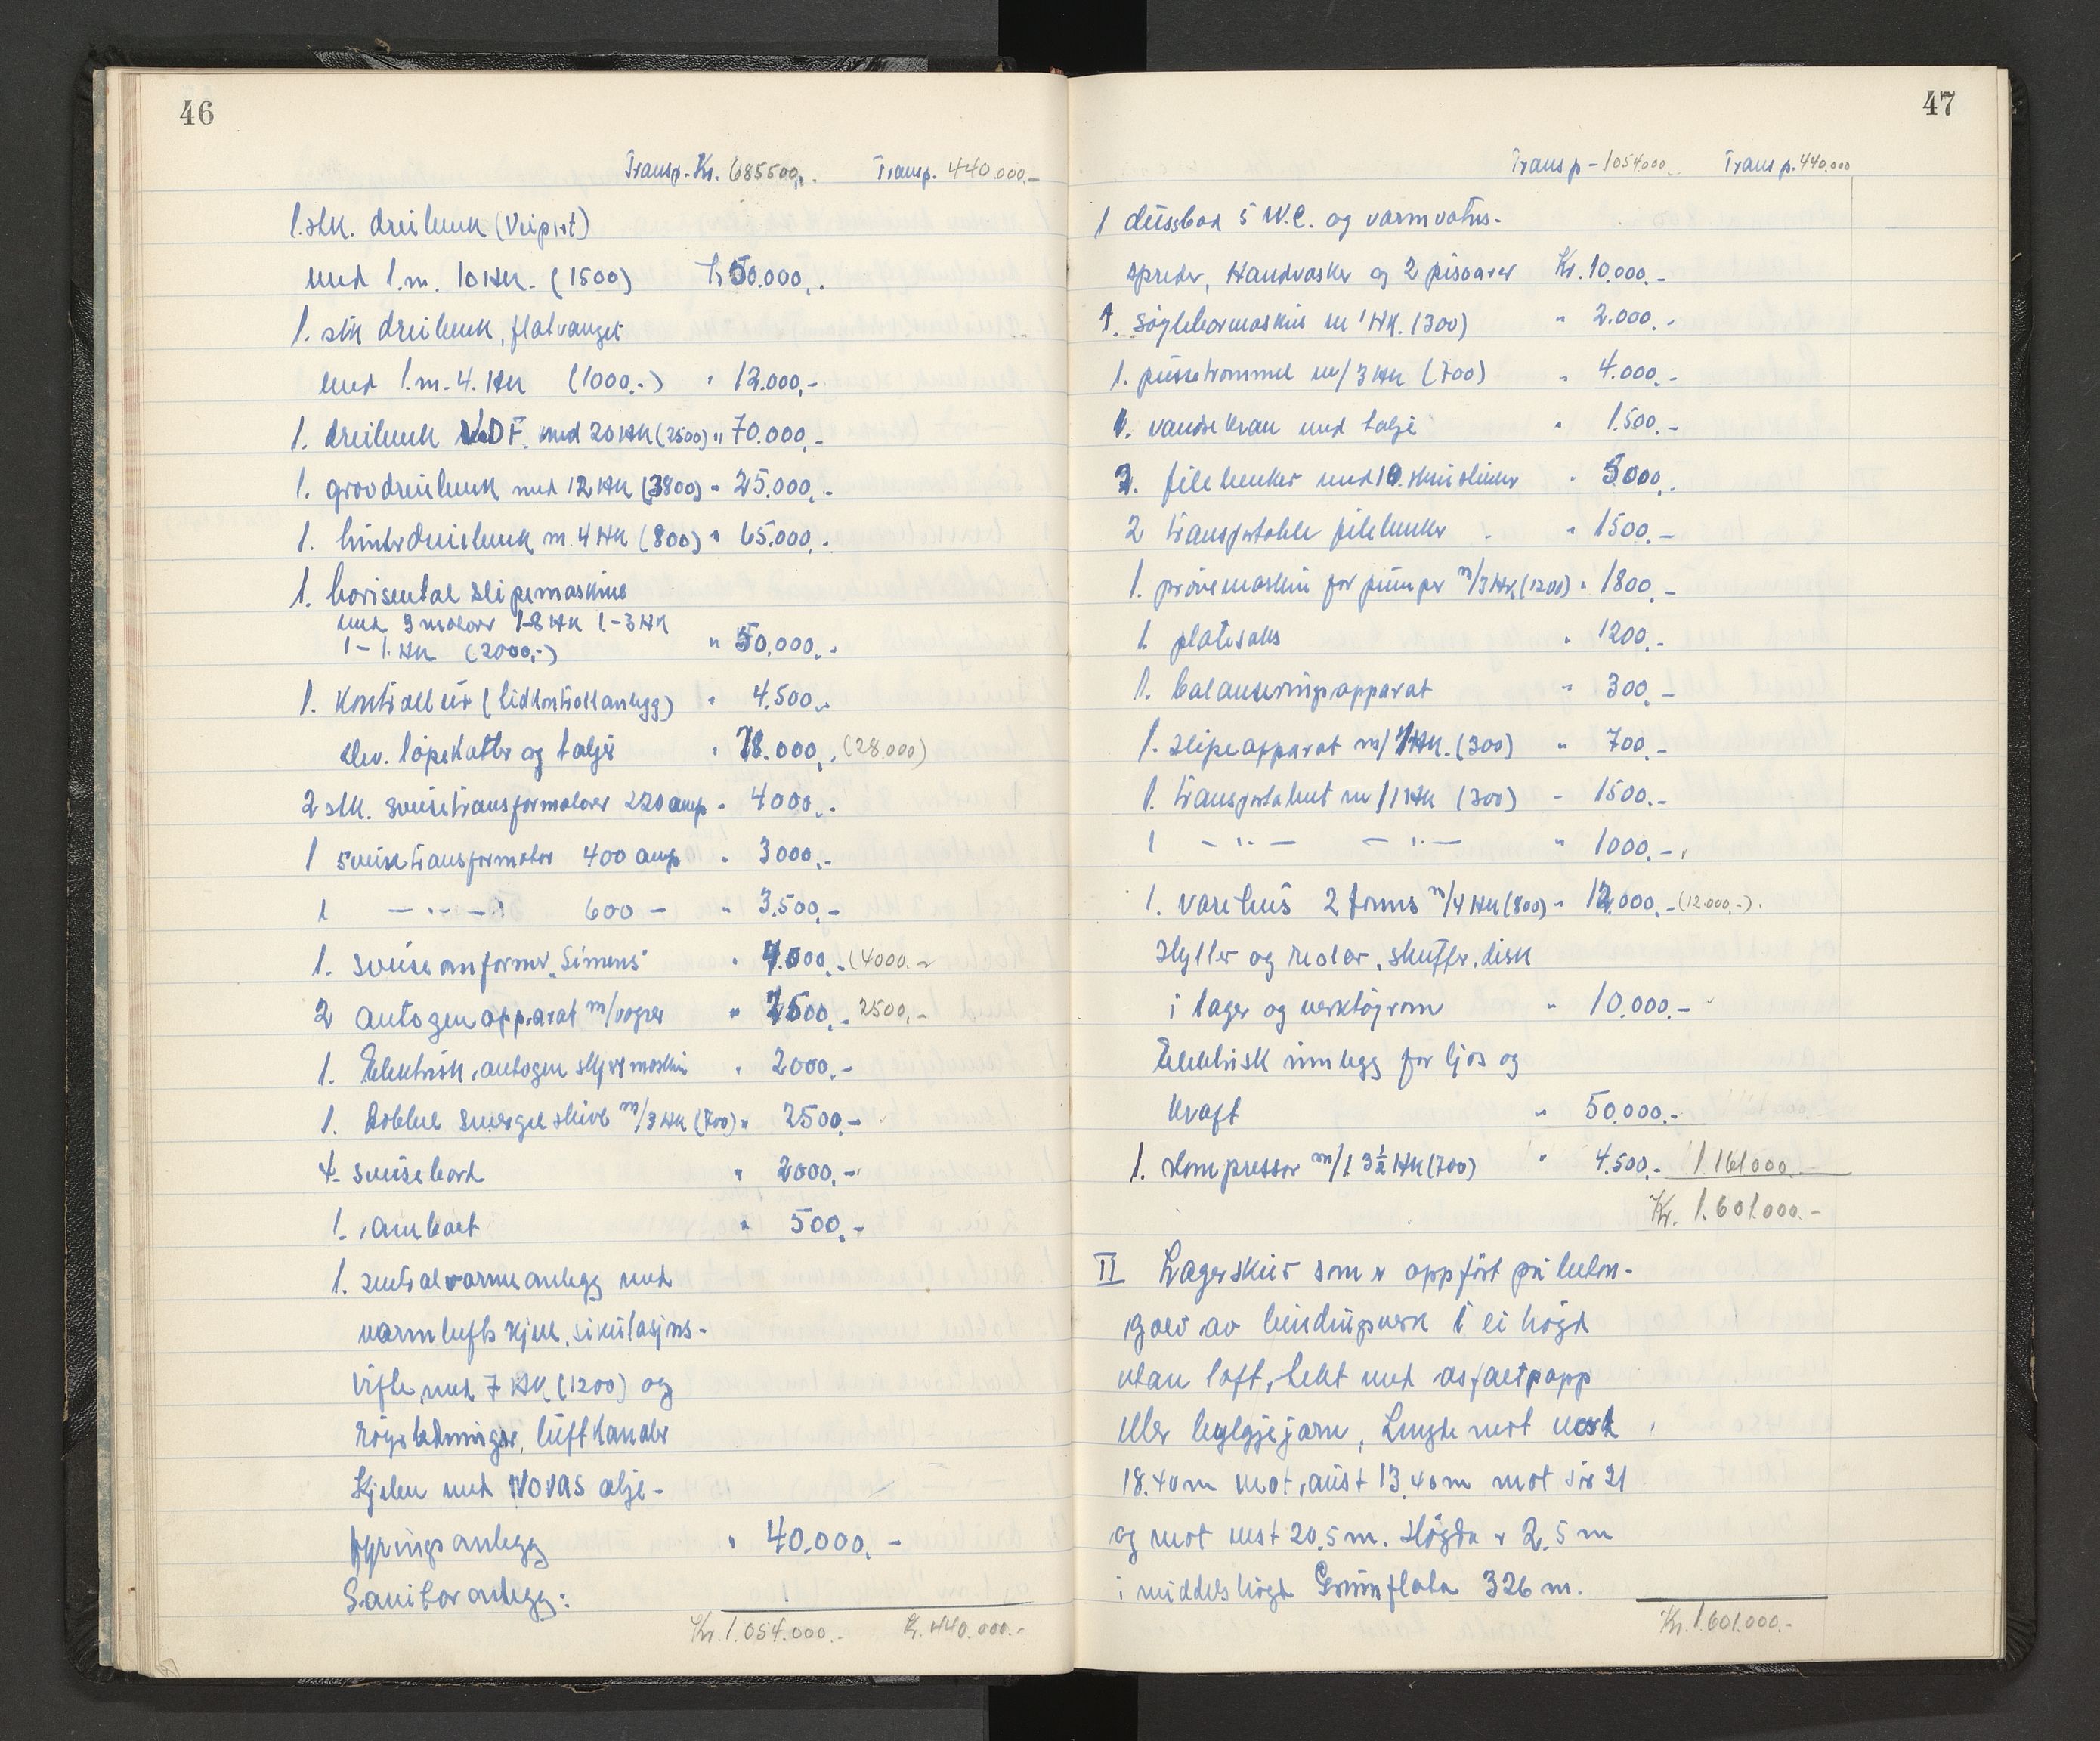 46
Transp. Kr. 685500,- Transp. 440.000.-
1. stk. dreibenk (Veipert)
med 1. m. 10 HK. (1500) kr 50.000,-
1. stk dreibenk, flatvanget
med 1. m. 4. HK (1000.-) " 12.000,-
1. dreibenk VDF. med 20 HK (2500) " 70.000,-
1. grovdreibenk med 12 HK (3800) " 25.000,-
1. hinterdreibenk m. 4 HK (800) " 65.000,-
1. horisontal slipemaskine
med 3 motorer 1-8 HK 1-3 HK
1 - 1. HK (2000,-) " 50.000,-
1. Kontrollur (tidkontrollanlegg) " 4.500,-
elev. løpekatter og taljer " 28.000,- (28.000)
2 stk. sveisetransformatorer 220 amp " 4000,-
1 sveisetransformator 400 amp " 3000,-
1 - " - 600 - " 3.500,-
1. sveiseomformer "Simens" " 4.000,- (4000.-
2 autogenapparat m/vogner " 2500,- 2500,-
1. Elektrisk autogen skjæremaskin " 2000.-
1. dobbel smergelskive m/3 HK (700) " 2500.-
4- sveisebord " 2000,-
1- ambolt " 500,-
1. sentralvarmeanlegg med
varmlufts kjel, sirkulasjons-
vifte, med 7 HK (1200) og
rørledninger, luftkanaler
Kjelen med Novas olje-
fyringsanlegg " 40.000.-
Sanitæranlegg:
Kr. 1.054.000.- Kr. 440.000.-
47
Transp - 1054000.- Transp. 440.000
1 dussbad 5 W.C. og varmvatns-
spreder, Handvasker og 2 pisoarer Kr. 10.000.-
1. søylebormaskin m 1 HK. (300) " 2.000.-
1. pussetrommel m/3 HK (700) " 4.000.-
1. vandrekran med talje " 1.500.-
3. filebenker med 10. skruestikker " 5000.-
2 transportable filebenker " 1500.-
1. prøvemaskin for pumper m/3 HK (1200) " 1800.-
1. platesaks " 1200.-
1. balanseringsapparat " 300.-
1. slipeapparat m/1 HK. (300) " 700.-
1. transportabelt m/1 HK (300) - 1500.-
1 - " - - " - " 1000.-
1. vareheis 2 tonns m/4 HK (800) " 12.000.- (12.000,-).
Hyller og reoler, skuffer, disk
i lager og verktøyrom " 10.000.-
Elektrisk innlegg for ljos og
kraft " 50.000.-
1. kompressor m/1 3½ HK (700) " 4.500.- 1.161.000.-
Kr. 1.601.000.-
II Lagerskur som er oppført på beton-
golv av bindingsverk i ei høgd
utan loft, tekt med asfaltpapp
eller bylgjejarn, Lengde mot nord
18.40 m mot aust 13.40 m mot sør 21
og mot vest 20.5 m. Høgda er 2.5 m
i middels høgd Grunnflata 326 m.
Kr. 1.601.000.-